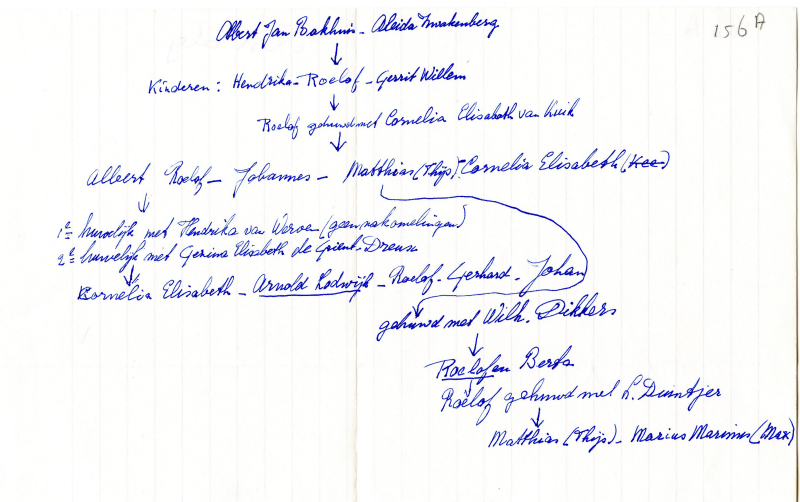 156A
Albert Jan Bakhuis - Aleida Zwakenberg
Kinderen: Hendrika - Roelof - Gerrit Willem
Roelof gehuwd met Cornelia Elisabeth van Kuik
Albert Roelof - Johannes - Matthias (Thijs). Cornelia Elisabeth (Kee)
1e huwelijk met Hendrika van Werven (geen nakomelingen)
2e huwelijk met Gerina Elisabeth de Grient-Dreux
Cornelia Elisabeth - Arnold Lodwijk - Roelof - Gerhard - Johan
gehuwd met Wilh. Dikkers
Roelof en Berta
Roelof gehuwd met L. Duintjer
Matthias (Thijs) - Marius Marinus (Max)